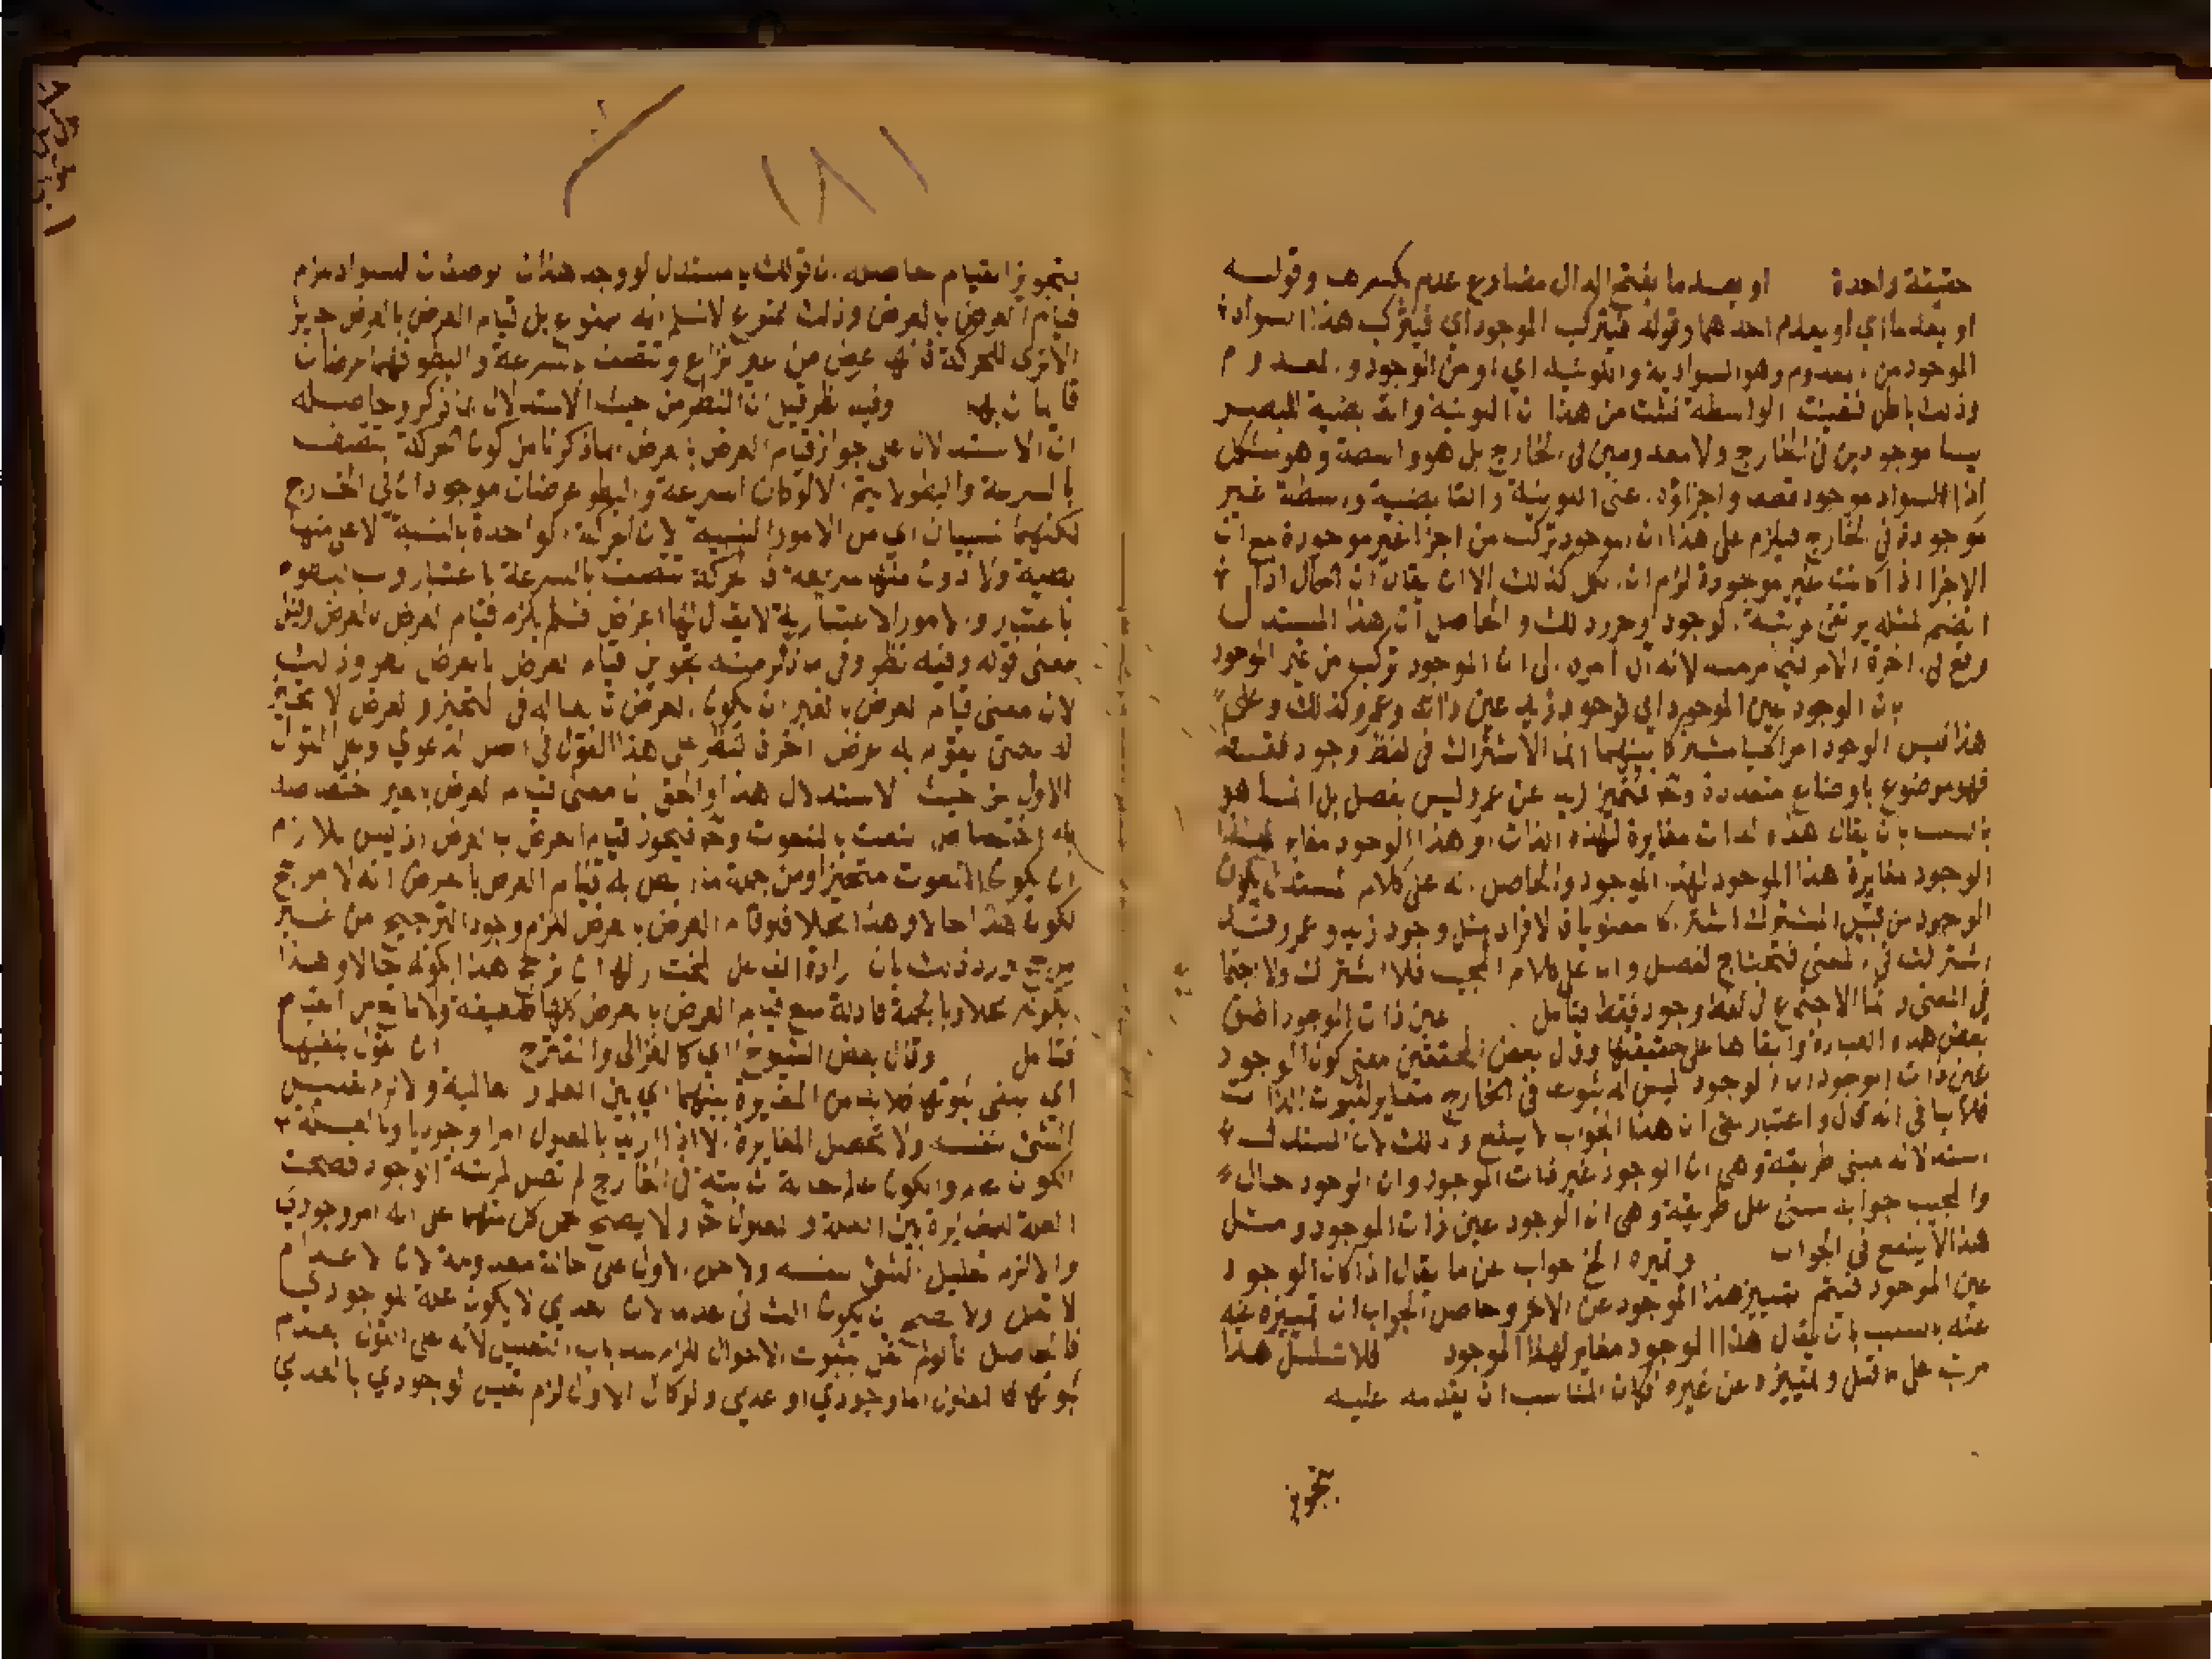 حقيقة واحدة او يعدما بفتح الدال مضارع عدم بكسرها وقوله
او يعدما اي او يعدم احدهما وقوله فيتركب الموجود اي فيتركب هذا السواد
الموجود من المعدوم وهو السوادية واللونية اي او من الموجود والمعدوم
وذلك باطل فتعينت الواسطة فثبت من هذا ان اللونية والقابضية للبصر
ليسا موجودين في الخارج ولا معدومين في الخارج بل هو واسطة وهو مشكل
اذ السواد موجود قطعا واجزاؤه اعني اللونية والقابضية واسطة غير
موجودة في الخارج فيلزم على هذا ان الموجود تركب من اجزا غير موجودة مع ان
الاجزا اذا كانت غير موجودة لزم ان الكل كذلك الا ان يقال ان الحال اذا
انضم لمثله يرتقي مرتبة الوجود وحرر ذلك والحاصل ان هذا المستدل
وقع في اخرة الامر فيما فر منه لانه ال امره الى ان الموجود تركب من غير الموجود
بان الوجود عين الموجود اي فوجود زيد عين ذاته وعمرو كذلك وعلى
هذا فليس الوجود امرا كليا مشتركا بينهما انما الاشتراك في لفظ وجود فقط
فهو موضوع باوضاع متعددة وح فتميز زيد عن عمرو ليس بفصل بل انما هو
بالسلب بان يقال هذه الذات مغايرة لهذه الذات او هذا الوجود مغاير لهذا
الوجود مغايرة هذا الموجود لهذا الموجود والحاصل انه على كلام المستدل يكون
الوجود من قبيل المشترك اشتراكا معنويا فالافراد مثل وجود زيد وعمرو قد
اشتركت في المعنى فتحتاج لفصل واما على كلام المجيب فلا اشتراك ولا اجتماع
في المعنى وانما الاجتماع في لفظ وجود فقط فتأمل عين ذات الموجود اطلق
بعض هذه العبارة وابقاها على حقيقتها وقال بعض المحققين معنى كون الوجود
عين ذات الموجود ان الوجود ليس له ثبوت في الخارج مغاير لثبوت الذات
فلا ينافي انه حال واعتبار بقي ان هذا الجواب لا ينفع وذلك لان المستدل
اسند لانه مبني طريقته وهي ان الوجود غير ذات الموجود وان الوجود حال
والمجيب جوابه مبني على طريقته وهي ان الوجود عين ذات الموجود ومثل
هذا لا ينفع في الجواب وتميزه الخ جواب عن ما يقال اذا كان الوجود
عين الموجود فبم تمييز هذا الموجود عن الاخر وحاصل الجواب ان تمييزه عنه
عنه بالسلب بان يقال هذا الوجود مغاير لهذا الموجود فلا تسلسل هذا
مرتب على ما قبل وتمييزه عن غيره فكان المناسب ان يقدمه عليه
بتجويز
١٨١
بتجويز القيام حاصله ان قولك يا مستدل لو وجد هذان الوصفان للسواد لزم
قيام العرض بالعرض وذلك ممنوع لا نسلم انه ممنوع بل قيام العرض بالعرض جايز
الا ترى للحركة فانها عرض من غير نزاع وتتصف بالسرعة والبطو فهما عرضان
قايمان بها وفيه نظر قيل ان النظر من حيث الاستدلال بما ذكر وحاصله
ان الاستدلال على جواز قيام العرض بالعرض بما ذكرنا من كون الحركة تتصف
بالسرعة والبطو لا يتم الا لو كان السرعة والبطو عرضان موجودان في الخارج
لكنهما نسبيان اي من الامور النسبية لان الحركة الواحدة بالنسبة لاعلى منها
بطيئة ولادون منها سريعة فالحركة تتصف بالسرعة باعتبار وبالبطوء
باعتبار والامور الاعتبارية لا يقال لها اعراض فلم يلزم قيام العرض بالعرض وقيل
معنى قوله وفيه نظر وفي ما ذكر منه تجويز قيام العرض بالعرض نظر وذلك
لان معنى قيام العرض بالغير ان يكون العرض تابعا له في التحيز والعرض لا تحيز
له حتى يقوم به عرض اخر فالنظر على هذا القول في اصل الدعوى وعلى القول
الاول من حيث الاستدلال هذا والحق ان معنى قيام العرض بالغير اختصاصه
به اختصاص النعت بالمنعوت وح فيجوز قيام العرض بالعرض اذ ليس يلازم
ان يكون المنعوت متحيزا ومن جملة ما ابطل به قيام العرض بالعرض انه لا مرجح
لكون هذا حالا وهذا محلا فلو قام العرض بالعرض للزم وجود الترجيح من غير
مرجح ورد ذلك بان ارادة الفاعل المختار لها ان ترجح هذا بكونه حالا وهذا
بكونه محلا وبالجملة فادلة منع قيام العرض بالعرض كلها ضعيفة ولا مانع من القيام
فتأمل وقال بعض الشيوخ اي كالغزالي والمقترح ان يقول بنفيها
اي ينفي ثبوتها فلا بد من المغايرة بينهما اي بين العلم والعالمية والا لزم تعليل
الشئ بنفسه ولا تحصل المغايرة الا اذا اريد بالمعلول امرا وجوديا وبالعلة
الكون عالما والكون عالما حالة ثابتة في الخارج لم تصل لمرتبة الوجود فصحت
العلة لمغايرة بين العلة والمعلول ح ولا يصح حمل كل منهما على انه امر وجودي
والا لزم تعليل الشئ بنفسه ولا حمل الاول على حالة معدومة لان الاعدام
لا تعلل ولا يصح ان يكون الثاني عدما لان العدمي لا يكون علة للوجودي
فالحاصل انا لو لم نقل بثبوت الاحوال للزم سد باب التعليل لانه على القول بعدم
ثبوتها فالمعلول اما وجودي او عدمي ولو كان الاول لزم تعليل الوجودي بالعدمي